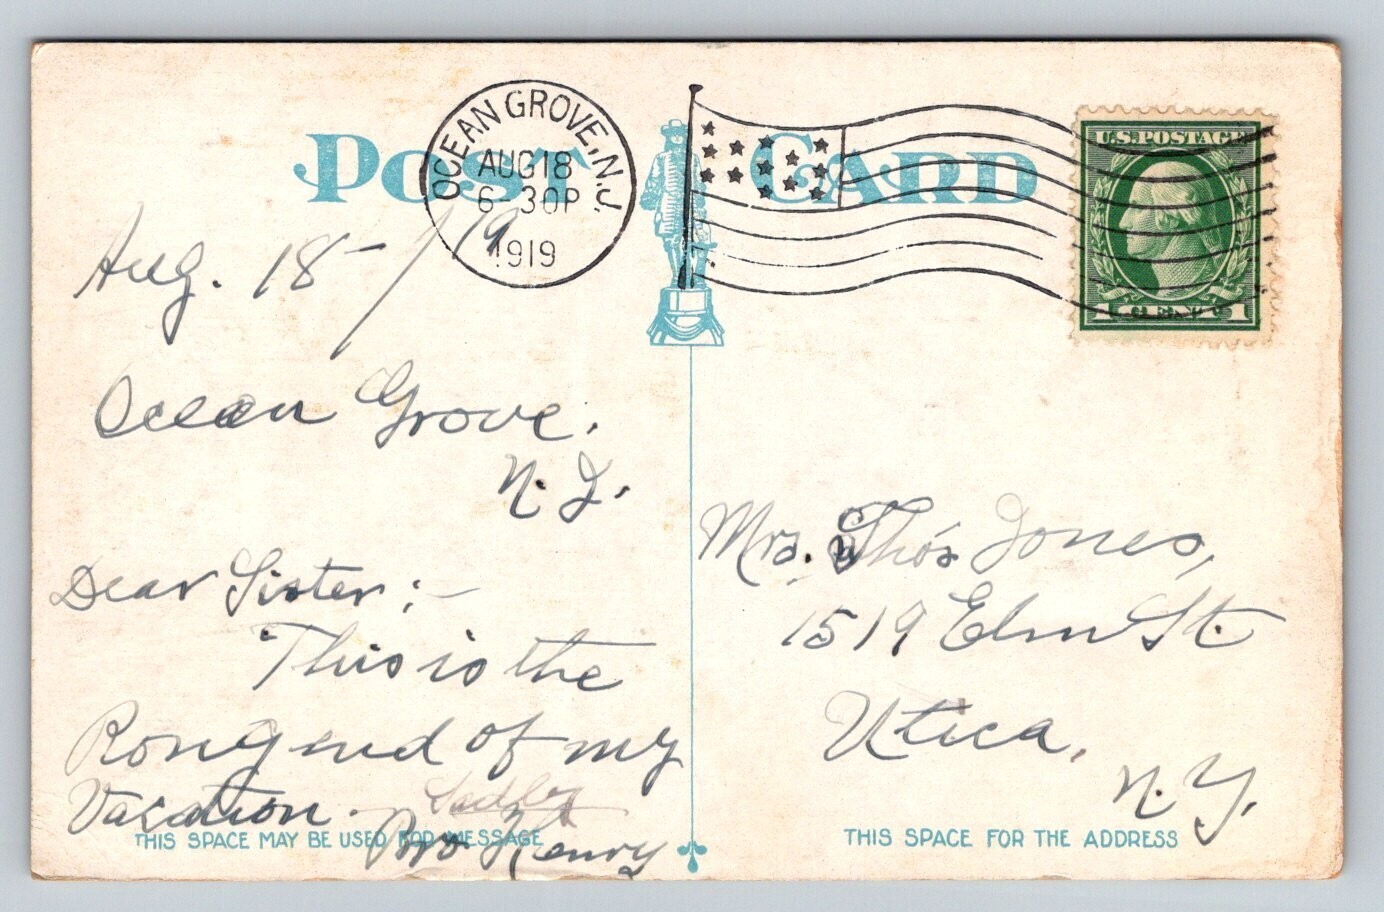 POST CARD
OCEAN GROVE, N.J.
AUG 18
6-30P
1919
U.S. POSTAGE
1 CENT 1
Aug. 18-/19
Ocean Grove.
N.J.
Dear Sister:-
This is the
Rong end of my
Vacation.
Sadly
Bro Henry
THIS SPACE MAY BE USED FOR MESSAGE
Mrs. Tho's Jones,
1519 Elm St.
Utica,
N.Y.
THIS SPACE FOR THE ADDRESS